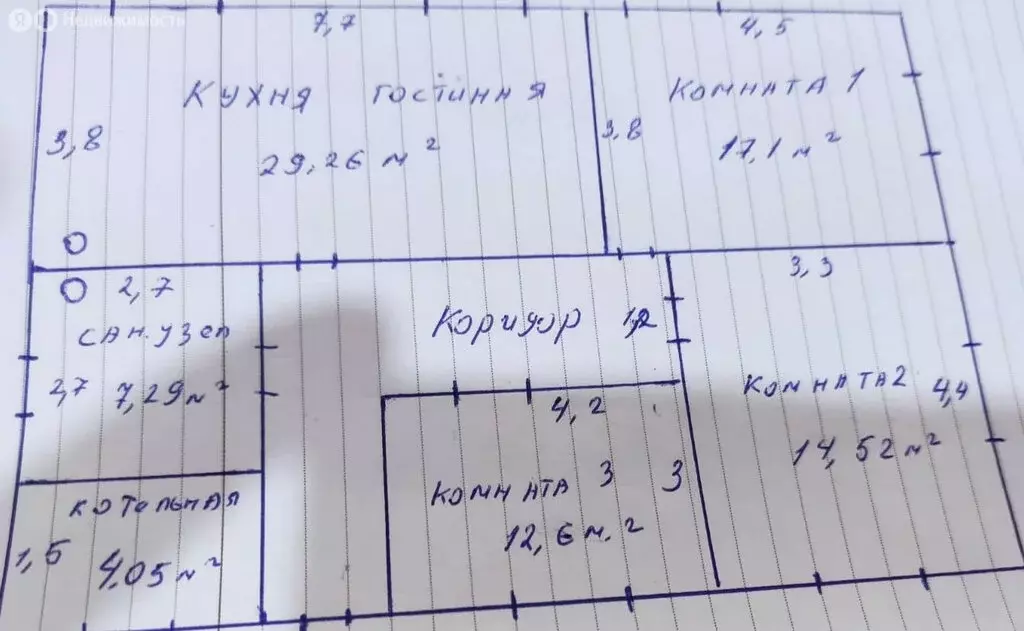 Я Недвижимость
7,7
4,5
Кухня гостиная
Комната 1
3,8
3,8
29,26 м²
17,1 м²
2,7
3,3
сан.узел
Коридор 1,2
2,7 7,29 м²
Комната 2 4,4
4,2
14,52 м²
Комната 3 3
котельная
12,6 м.²
1,5 4,05 м²